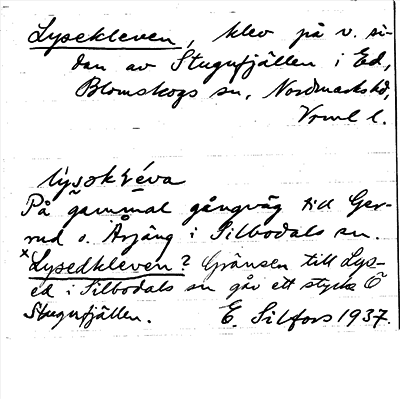 Lysekleven, klev på v. si-
dan av Stugufjällen i Ed,
Blomskogs sn, Nordmarks hd,
Vrml l.
På gammal gångväg till Ger-
rud o. Årjäng i Silbodals sn.
*Lysedkleven? Gränsen till Lys-
ed i Silbodals sn går ett stycke Ö
Stugufjällen. E. Silfors 1937.